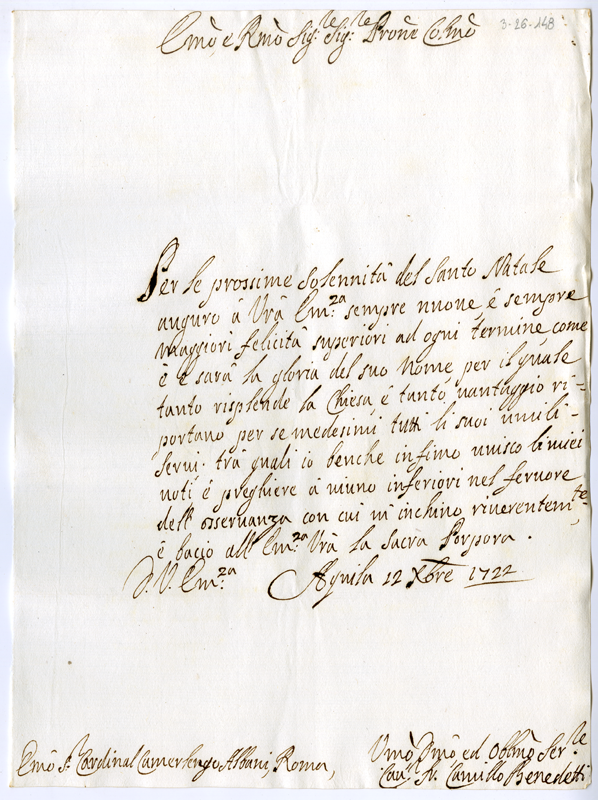 Emõ, e Rmõ Sig.re Sig.re Prone Colmõ
3-26-148
Per le prossime solennità del Santo Natale
auguro à Vrã Em.za sempre nuoue, è sempre
maggiori felicità superiori ad ogni termine come
è e sarà la gloria del suo Nome per il quale
tanto risplende la Chiesa, è tanto uantaggio ri-
portano per se medesimi tutti li suoi umili-
serui. trà quali io benche infimo unisco li miei
uoti, é preghiere à niuno inferiori nel feruore
dell'osseruanza con cui m'inchino riuerentem.te,
è bacio all'Em.za Vrã la Sacra Porpora.
D. V. Em.za Aquila 12 Xbre 1722
Emõ S.r Cardinal Camerlengo Albani, Roma,
Umõ Dmõ ed Obbmõ Ser.re
Cau.r Camillo Benedetti